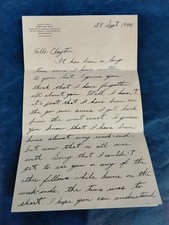 28 Sept. 1944
Hello Clayton,
It has been a long
time since I have
to you but I guess you
think that I have forgotten
all about you. Well I haven't
it's just that I have been on
the go ever since I got back
from the west coast. I guess
you know that I have been
home almost every week-end
but now that is all over
with. Sorry that I couldn't
get to see you or any of the
other fellows while home on
the week-ends, the time was to
short. I hope you can understand